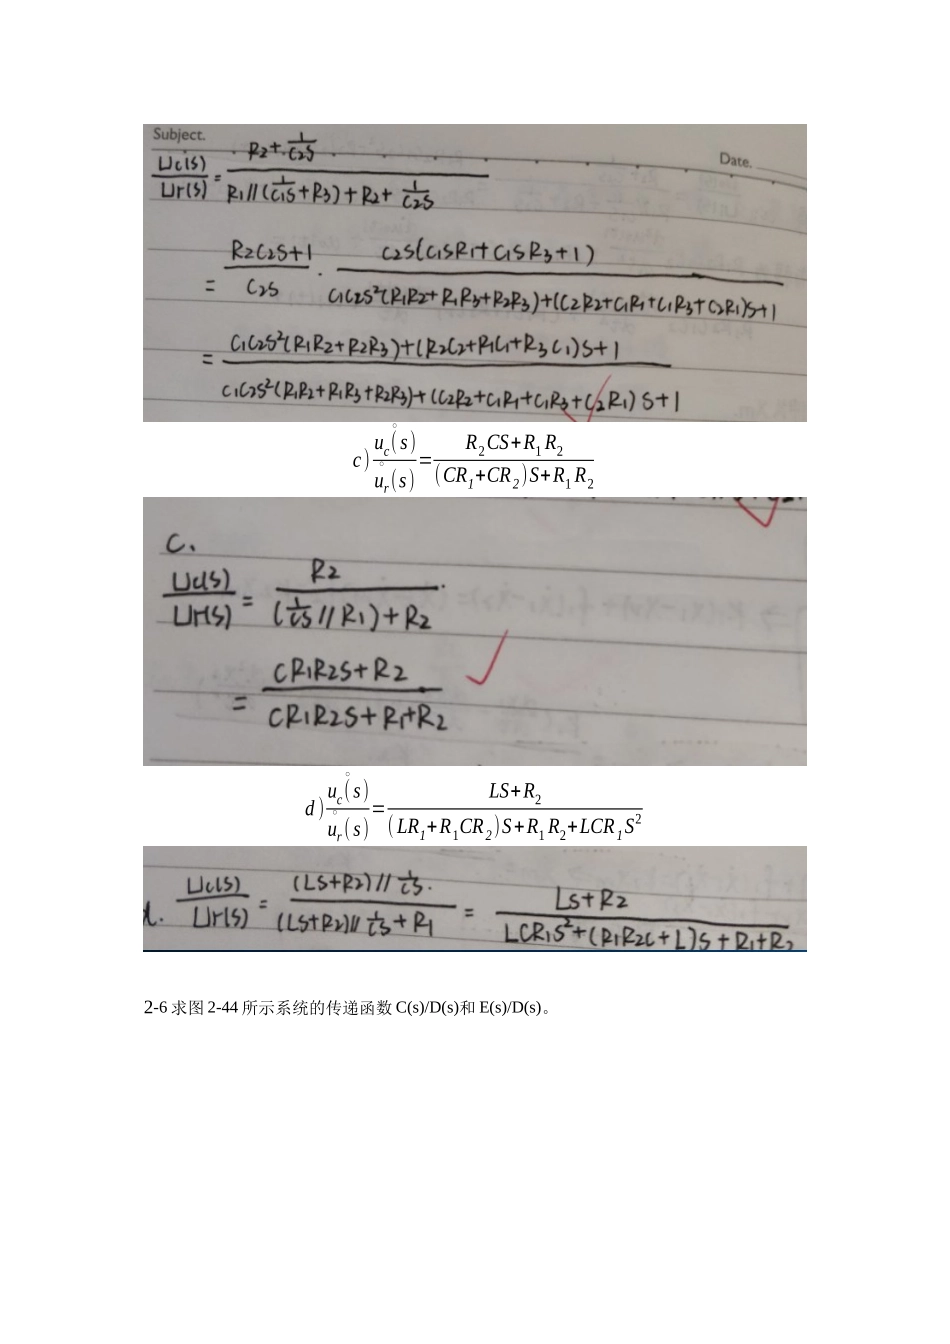 Subject.
Date.
Uc(s)/Ur(s) = (R2+1/C2S)/(R1//(1/C1S+R3)+R2+1/C2S)
= (R2C2S+1)/C2S · C2S(C1SR1+C1SR3+1)/(C1C2S²(R1R2+R1R3+R2R3)+(C2R2+C1R1+C1R3+C2R1)S+1)
= (C1C2S²(R1R2+R2R3)+(R2C2+R1C1+R3C1)S+1)/(C1C2S²(R1R2+R1R3+R2R3)+(C2R2+C1R1+C1R3+C2R1)S+1)
c) u_c°(s)/u_r°(s) = (R₂CS+R₁R₂)/((CR₁+CR₂)S+R₁R₂)
C.
Uc(s)/Ur(s) = R2/((1/CS//R1)+R2)
= (CR1R2S+R2)/(CR1R2S+R1+R2)
d) u_c°(s)/u_r°(s) = (LS+R₂)/((LR₁+R₁CR₂)S+R₁R₂+LCR₁S²)
d. Uc(s)/Ur(s) = ((LS+R2)//1/CS)/((LS+R2)//1/CS+R1) = (LS+R2)/(LCR1S²+(R1R2C+L)S+R1+R2)
2-6 求图 2-44 所示系统的传递函数 C(s)/D(s)和 E(s)/D(s)。